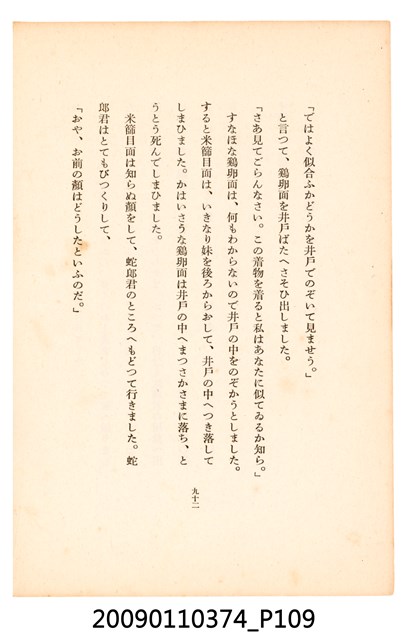 「ではよく似合ふかどうかを井戸でのぞいて見ませう。」
と言つて、鷄卵面を井戸ばたへさそひ出しました。
「さあ見てごらんなさい。この着物を着ると私はあなたに似てゐるか知ら。」
すなほな鷄卵面は、何もわからないので井戸の中をのぞかうとしました。
すると米篩目面は、いきなり妹を後ろからおして、井戸の中へつき落して
しまひました。かはいさうな鷄卵面は井戸の中へまつさかさまに落ち、と
うとう死んでしまひました。
米篩目面は知らぬ顏をして、蛇郎君のところへもどつて行きました。蛇
郎君はとてもびつくりして、
「おや、お前の顏はどうしたといふのだ。」
九十二
20090110374_P109